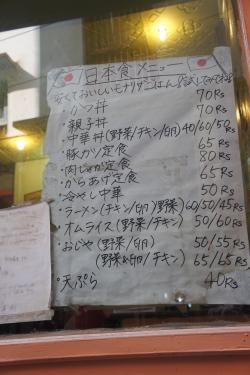 日本食メニュー
安くておいしいモナリザごはん
・かつ丼 70Rs
・親子丼 70Rs
・中華丼(野菜/チキン/卵) 40/60/50Rs
・豚カツ定食 65Rs
・肉じゃが定食 80Rs
・からあげ定食 65Rs
・冷やし中華 50Rs
・ラーメン(チキン/卵/野菜) 60/50/45Rs
・オムライス(野菜/チキン) 50/60Rs
・おじや(野菜/卵) 50/55Rs
(野菜&卵/チキン) 65/65Rs
・天ぷら 40Rs